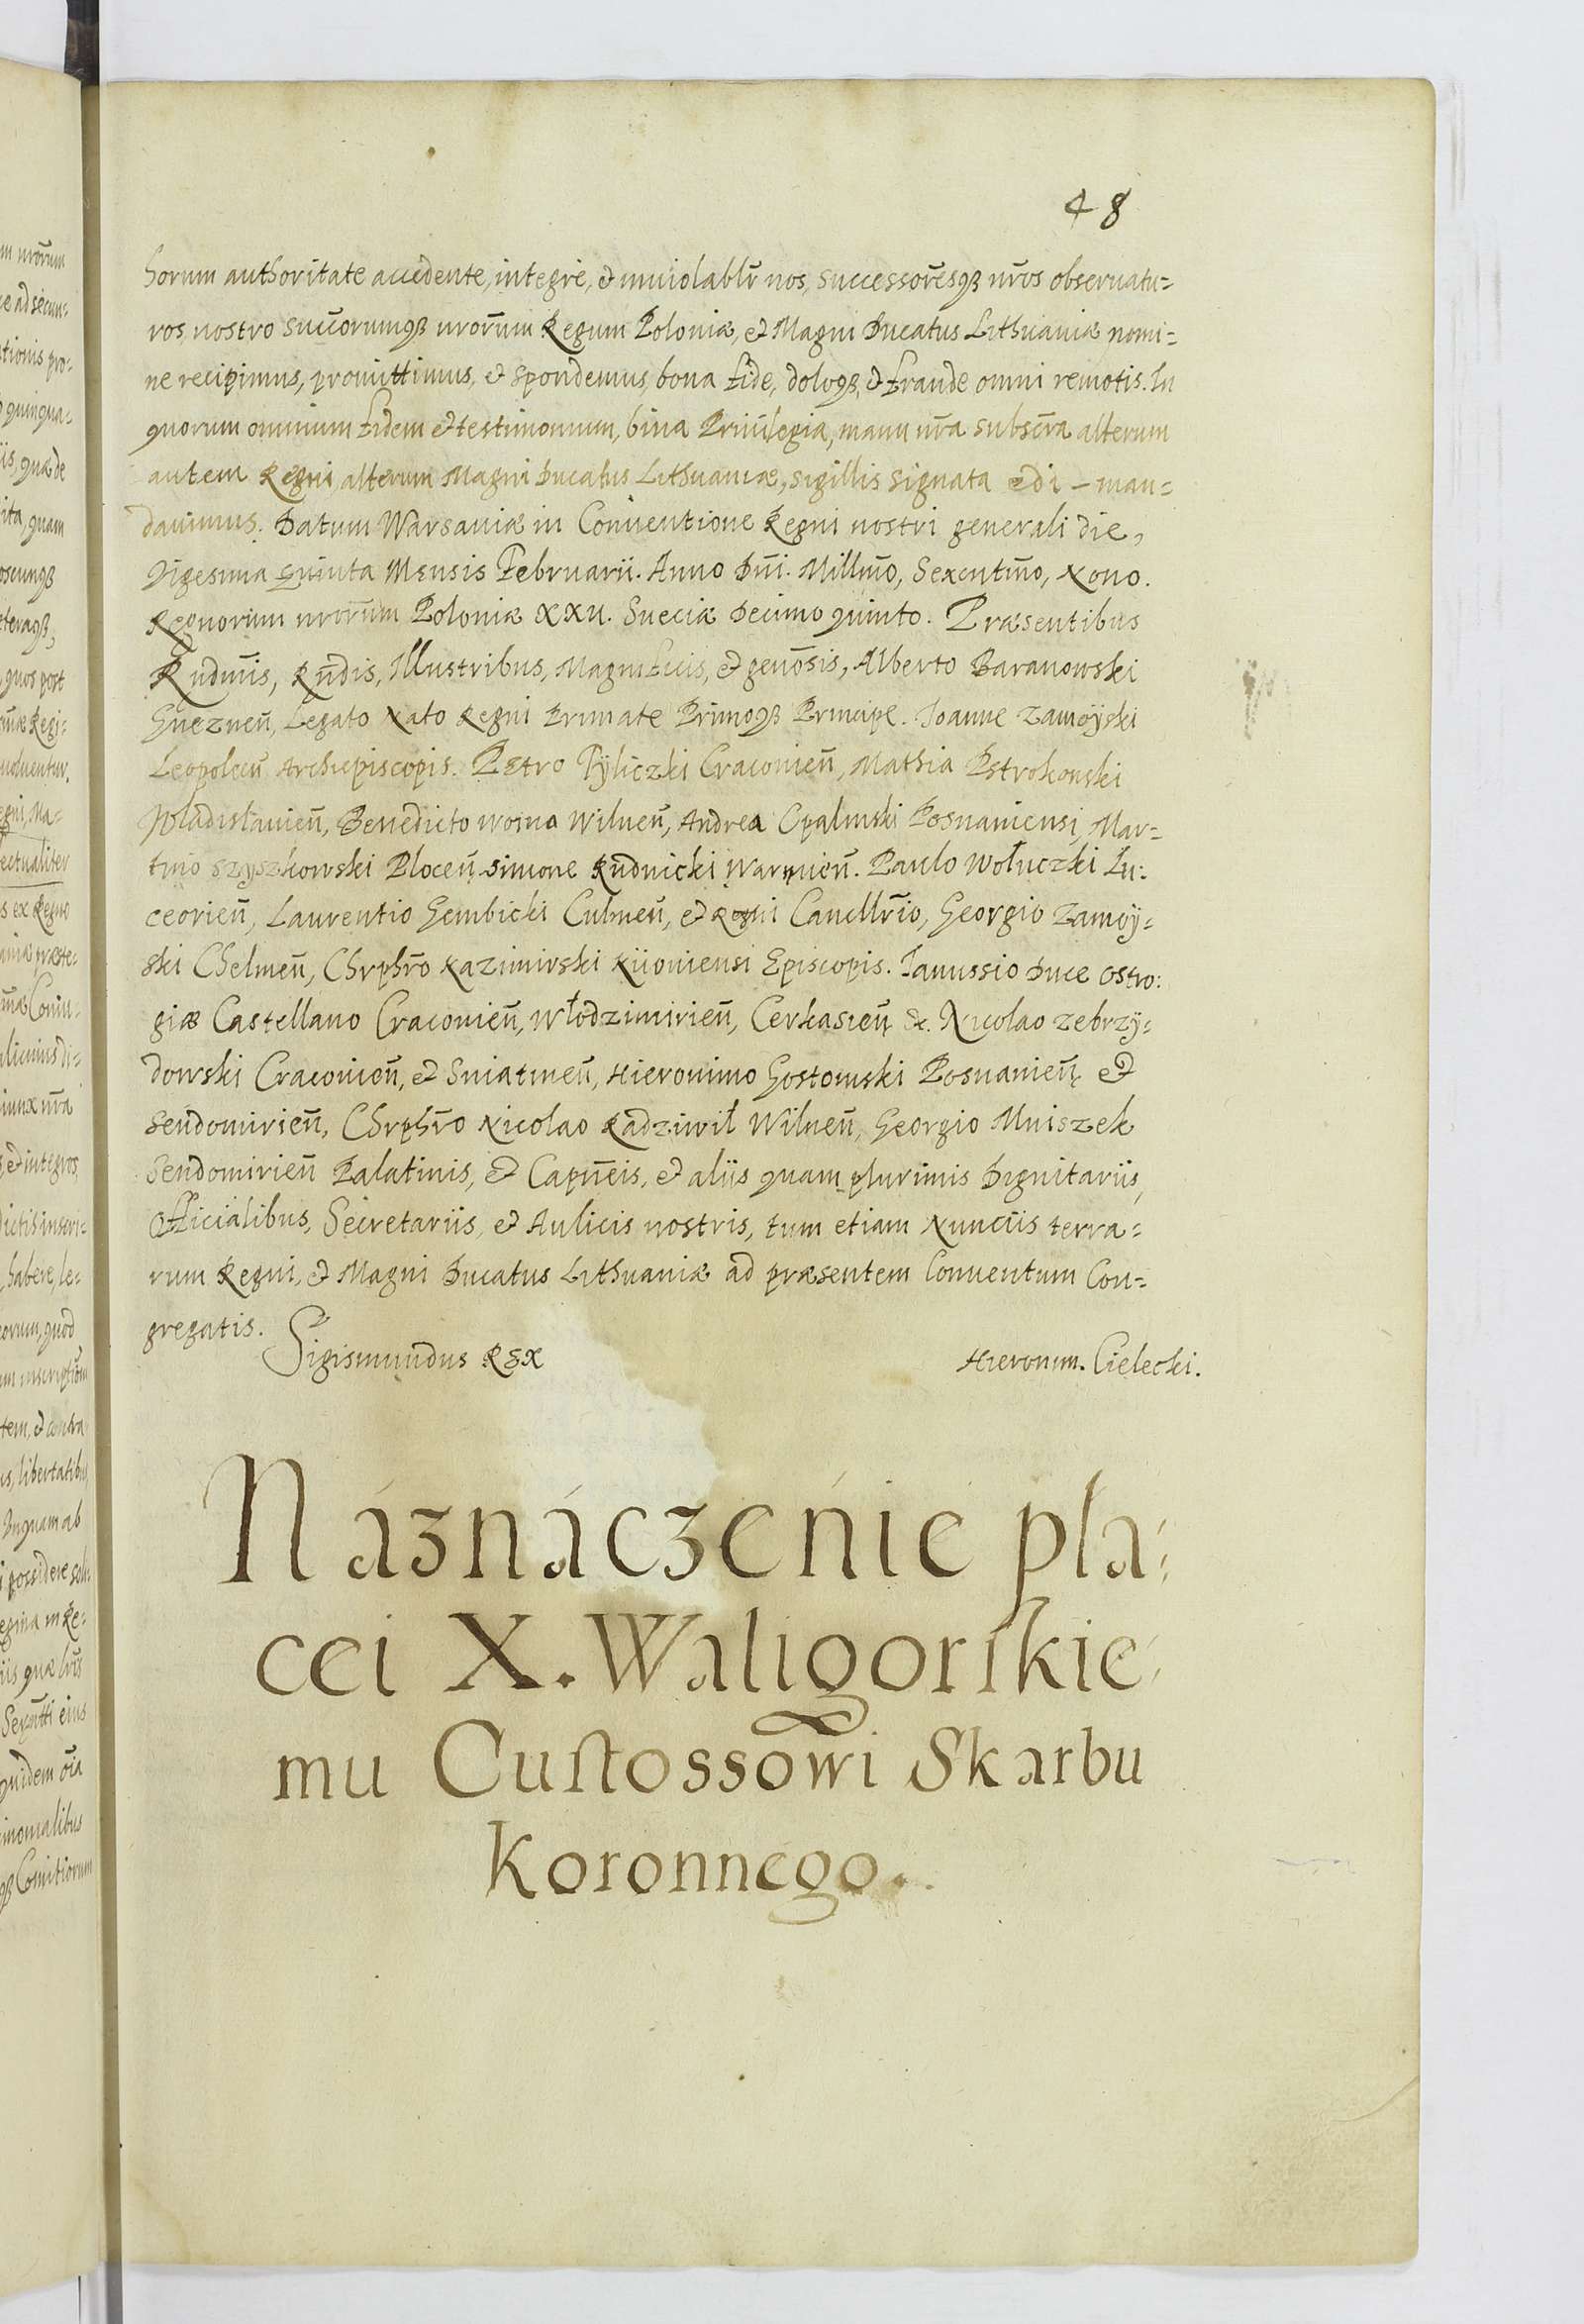 48
horum authoritate accedente, integrè, et inviolablr̃ nos, successorẽsqȝ nr̃os observatu=
ros, nostro succorumqȝ nrorũm Regum Poloniæ, et Magni Ducatus Lithuaniæ nomi=
ne recipimus, promittimus, et spondemus, bona fide, doloqȝ, et fraude omni remotis. In
quorum omnium fidem et testimonium, bina Privilegia, manu nr̃a subscr̃a alterum
autem Regni, alterum Magni Ducatus Lithuaniæ, sigillis signata edi - man=
davimus. Datum Warsaviæ in Conventione Regni nostri generali die,
Vigesima Quinta Mensis Februarii. Anno Dnĩ. Millm̃o, Sexcentm̃o, Nono.
Regnorum nrorũm Poloniæ XXII. Sueciæ Decimo quinto. Præsentibus
Rũdmis, Rñdis, Illustribus, Magnificis, et genõsis, Alberto Baranowski
Gneznen̄, Legato Nato Regni Primate Primoqȝ Principe. Joanne Zamoÿski
Leopolien̄ Archiepiscopis. Petro Tÿliczki Cracovien̄, Mathia Pstrokonski
Wladislavien̄, Benedicto Woina Wilnen̄, Andrea Opalinski Posnaniensi, Mar=
tino Szÿszkowski Plocen̄ Simone Rudnicki Warmien̄. Paulo Wołuczki Lu:
ceorien̄, Laurentio Gembicki Culmen̄, et Regni Cancllr̃io, Georgio Zamoÿ=
ski Chelmen̄, Chrphr̃o Kazimirski Kiioviensi Episcopis. Janussio Duce Ostro:
giæ Castellano Cracovien̄, Włodzimirien̄, Cerkasien̄ &c. Nicolao Zebrzÿ=
dowski Cracovien̄, et Sniatinen̄, Hieronimo Gostomski Posnanien̄ et
Sendomirien̄, Chrphr̃o Nicolao Radziwił Wilnen̄, Georgio Mniszek
Sendomirien̄ Palatinis, et Capñeis, et aliis quam plurimis Dignitariis,
Officialibus, Secretariis, et Aulicis nostris, tum etiam Nunciis terra=
rum Regni, et Magni Ducatus Lithuaniæ ad præsentem Conventum Con=
gregatis.
Sigismundus Rex
Hieronim. Cielecki.
Náznáczenie pła=
cei X. Waligorſkie=
mu Cuſtossowi Skarbu
Koronnego.